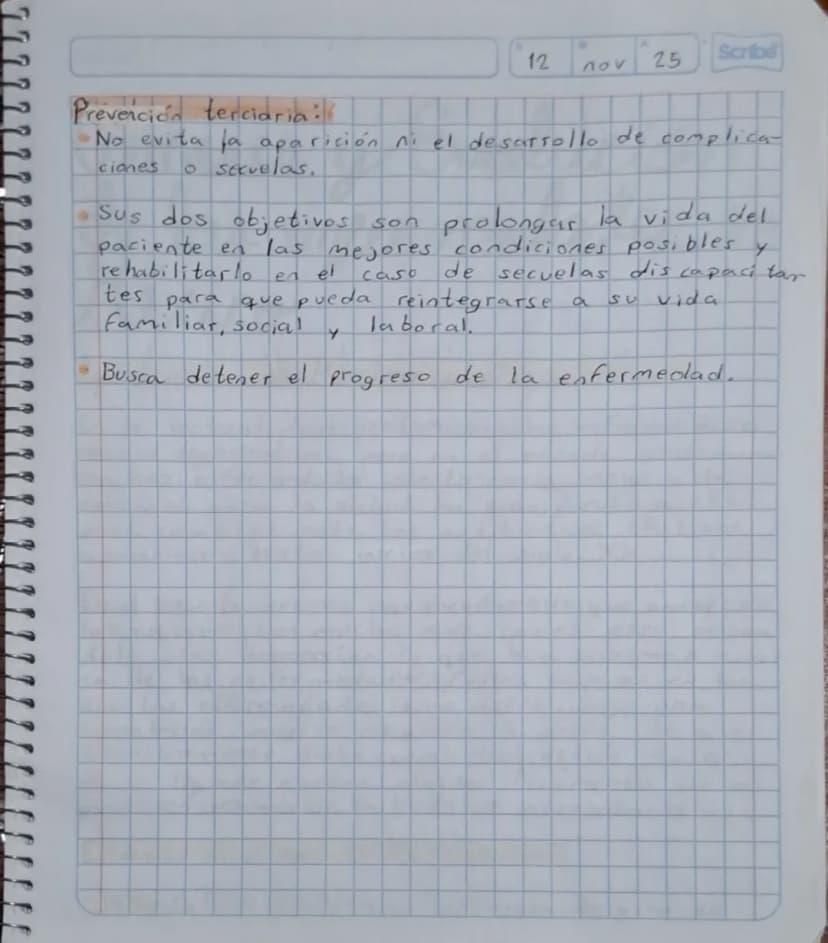 12 nov 25 Scribe
Prevención terciaria:
• No evita la aparición ni el desarrollo de complica-
ciones o secuelas.
• Sus dos objetivos son prolongar la vida del
paciente en las mejores condiciones posibles y
rehabilitarlo en el caso de secuelas discapacitan
tes para que pueda reintegrarse a su vida
familiar, social y laboral.
• Busca detener el progreso de la enfermedad.